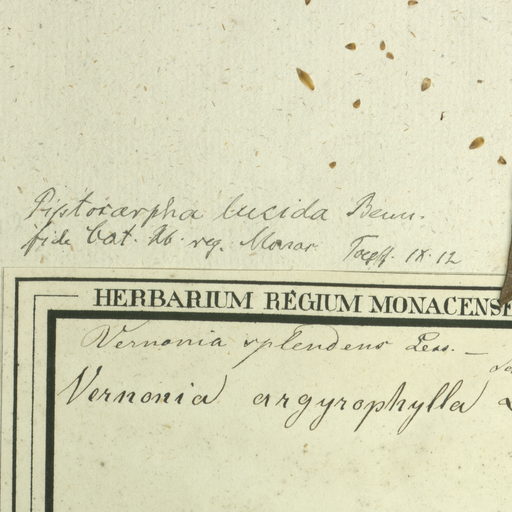 Piptocarpha lucida Benn.
fide Cat. Hb. reg. Monac. IX. 12
HERBARIUM REGIUM MONACENSE
Vernonia splendens Less. —
Vernonia argyrophylla